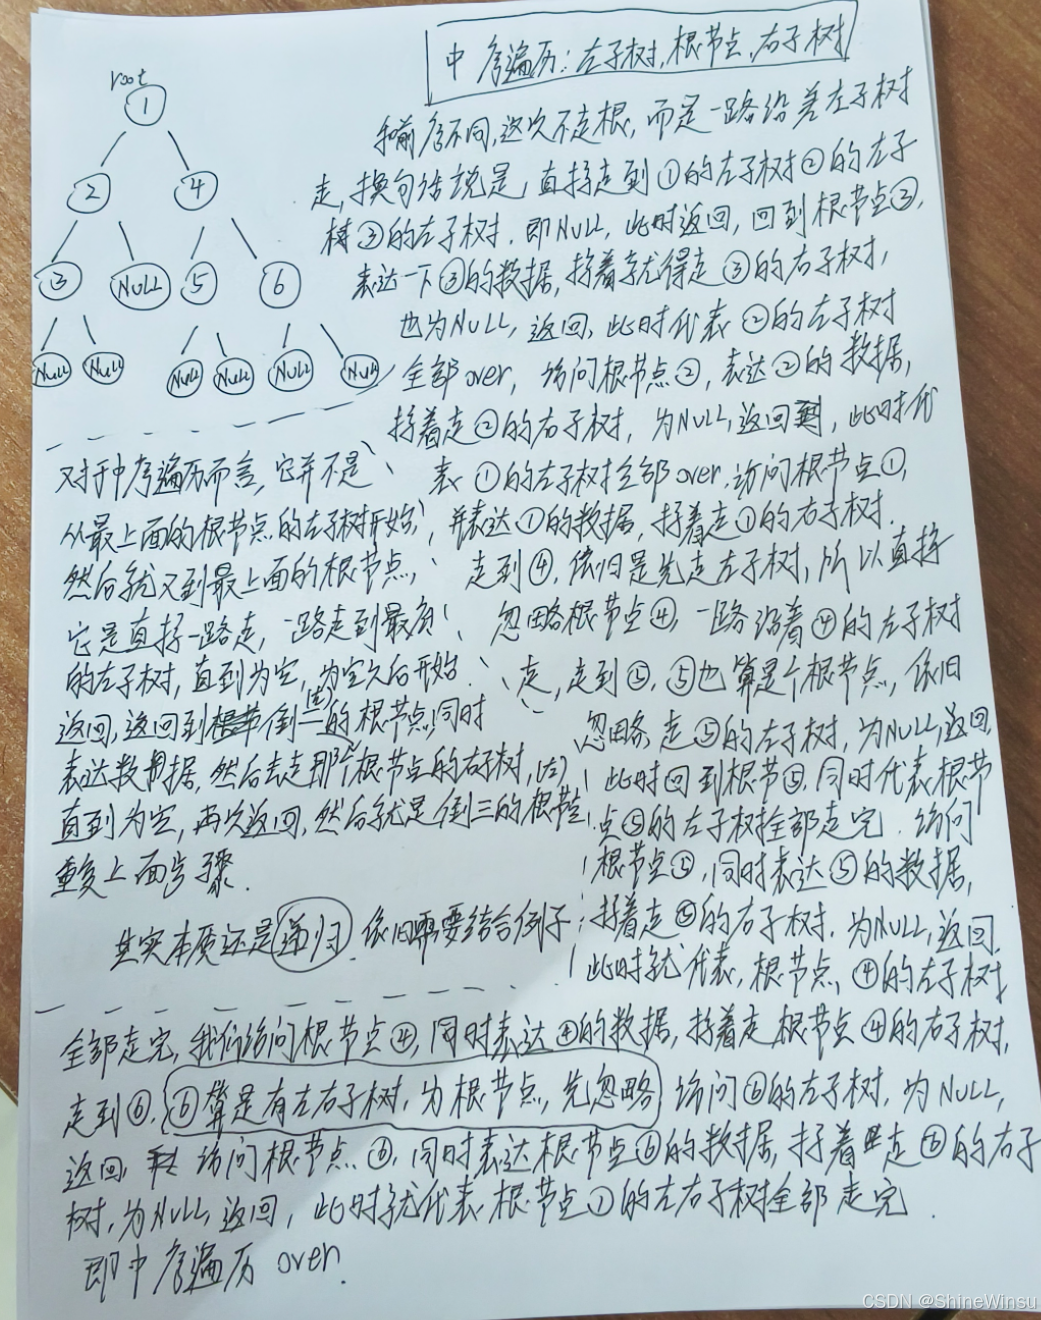 中序遍历:左子树,根节点,右子树
root
1
2
4
3
NULL
5
6
Null
Null
Null
Null
Null
Null
和前序不同,这次不走根,而是一路沿着左子树
走,换句话说是,直接走到①的左子树②的左子
树③的左子树.即NULL,此时返回,回到根节点③,
表达一下③的数据,接着就得走③的右子树,
也为NULL,返回,此时代表②的左子树
全部over,访问根节点②,表达②的数据,
接着走②的右子树,为NULL,返回,此时代
表①的左子树全部over,访问根节点①,
并表达①的数据,接着走①的右子树.
走到④,依旧是先走左子树,所以直接
忽略根节点④,一路沿着④的左子树
走,走到⑤,⑤也算是个根节点,依旧
忽略,走⑤的左子树,为NULL,返回,
此时回到根节⑤,同时代表根节
点⑤的左子树全部走完.访问
根节点⑤,同时表达⑤的数据,
接着走⑤的右子树.为NULL,返回.
此时就代表,根节点,④的左子树
又对于中序遍历而言,它并不是
从最上面的根节点的左子树开始,
然后就又到最上面的根节点,
它是直接一路走,一路走到最后
的左子树,直到为空,为空之后开始
返回,返回到倒一的根节点,同时
表达数据,然后去走那个根节点的右子树,(右)
直到为空,再次返回,然后就是倒三的根节点
重复上面步骤.
其实本质还是递归.依旧需要结合例子
全部走完,我们访问根节点④,同时表达④的数据,接着走根节点④的右子树,
走到⑥,⑥算是有左右子树,为根节点,先忽略 访问⑥的左子树,为NULL,
返回 访问根节点⑥,同时表达根节点⑥的数据,接着走⑥的右子
树,为NULL,返回,此时就代表根节点①的左右子树全部走完.
即中序遍历over.
CSDN @ShineWinsu